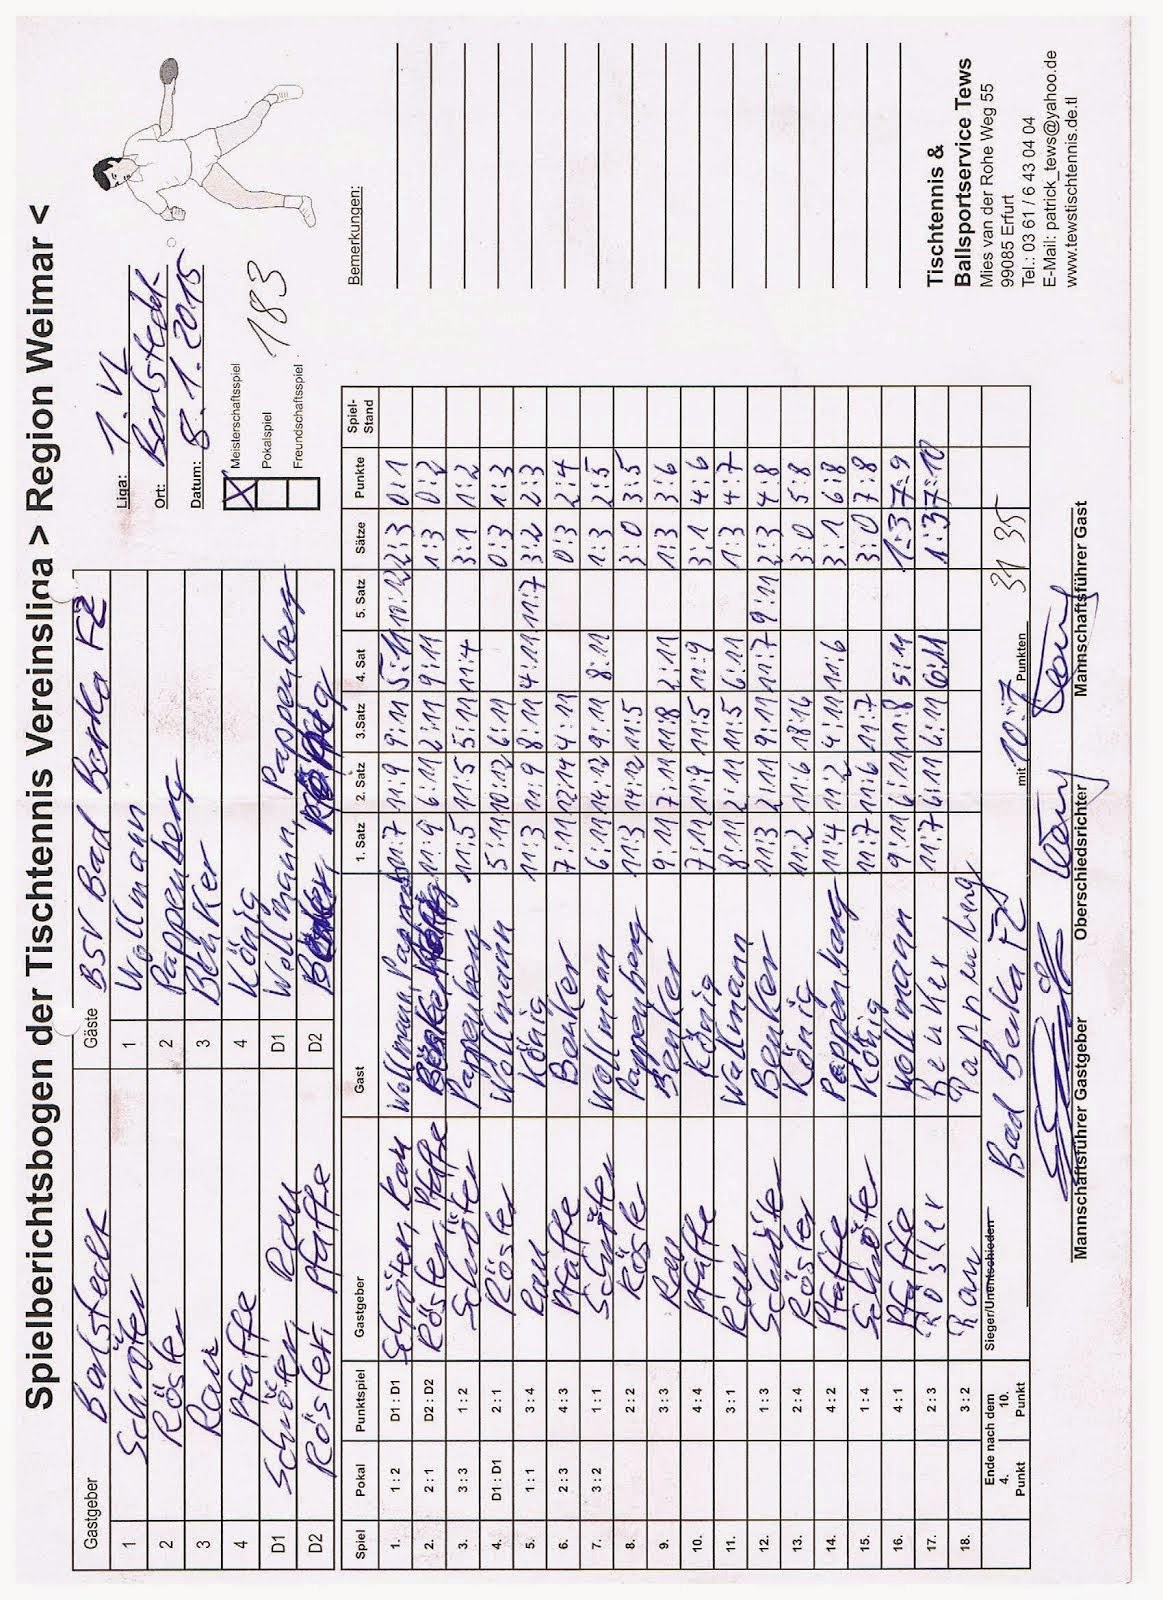 Spielberichtsbogen der Tischtennis Vereinsliga > Region Weimar <
Gastgeber Balstedt Gäste BSV Bad Berka FZ
1 Schröter 1 Wollmann
2 Röster 2 Pappenberg
3 Rau 3 Benker
4 Pfaffe 4 König
D1 Schröter, Rau D1 Wollmann, Pappenberg
D2 Röster, Pfaffe D2
Liga: 1. VL
Ort: Berlstedt
Datum: 8.1.2015
X Meisterschaftsspiel
Pokalspiel
Freundschaftsspiel
183
Spiel Pokal Punktspiel Gastgeber Gast 1. Satz 2. Satz 3.Satz 4. Sat 5. Satz Sätze Punkte Spiel-Stand
1. 1 : 2 D1 : D1 Schröter, Rau Wollmann 11:7 11:9 9:11 5:11 10:12 2:3 0:1
2. 2 : 1 D2 : D2 Röster, Pfaffe 11:9 6:11 2:11 9:11 1:3 0:2
3. 3 : 3 1 : 2 Schröter Pappenberg 11:5 11:5 5:11 11:4 3:1 1:2
4. D1 : D1 2 : 1 Röster Wollmann 5:11 10:12 6:11 0:3 1:3
5. 1 : 1 3 : 4 Rau König 11:3 11:9 8:11 4:11 11:7 3:2 2:3
6. 2 : 3 4 : 3 Pfaffe Benker 7:11 12:14 4:11 0:3 2:4
7. 3 : 2 1 : 1 Schröter Wollmann 6:11 14:12 9:11 8:11 1:3 2:5
8. 2 : 2 Röster Pappenberg 11:3 14:12 11:5 3:0 3:5
9. 3 : 3 Rau Benker 9:11 7:11 11:8 2:11 1:3 3:6
10. 4 : 4 Pfaffe König 7:11 11:9 11:5 11:9 3:1 4:6
11. 3 : 1 Rau Wollmann 8:11 2:11 11:5 6:11 1:3 4:7
12. 1 : 3 Schröter Benker 11:3 2:11 9:11 11:7 9:11 2:3 4:8
13. 2 : 4 Röster König 11:2 11:6 18:16 3:0 5:8
14. 4 : 2 Pfaffe Pappenberg 11:4 11:2 4:11 11:6 3:1 6:8
15. 1 : 4 Schröter König 11:7 11:6 11:7 3:0 7:8
16. 4 : 1 Pfaffe Wollmann 9:11 6:11 11:8 5:11 1:3 7:9
17. 2 : 3 Röster Benker 11:7 6:11 6:11 6:11 1:3 7:10
18. 3 : 2 Rau Pappenberg
Ende nach dem
4. 10.
Punkt Punkt
Sieger/Unentschieden Bad Berka FZ mit 10:7 Punkten 31 35
Mannschaftsführer Gastgeber Oberschiedsrichter Mannschaftsführer Gast
Bemerkungen:
Tischtennis &
Ballsportservice Tews
Mies van der Rohe Weg 55
99085 Erfurt
Tel.: 03 61 / 6 43 04 04
E-Mail: patrick_tews@yahoo.de
www.tewstischtennis.de.tl